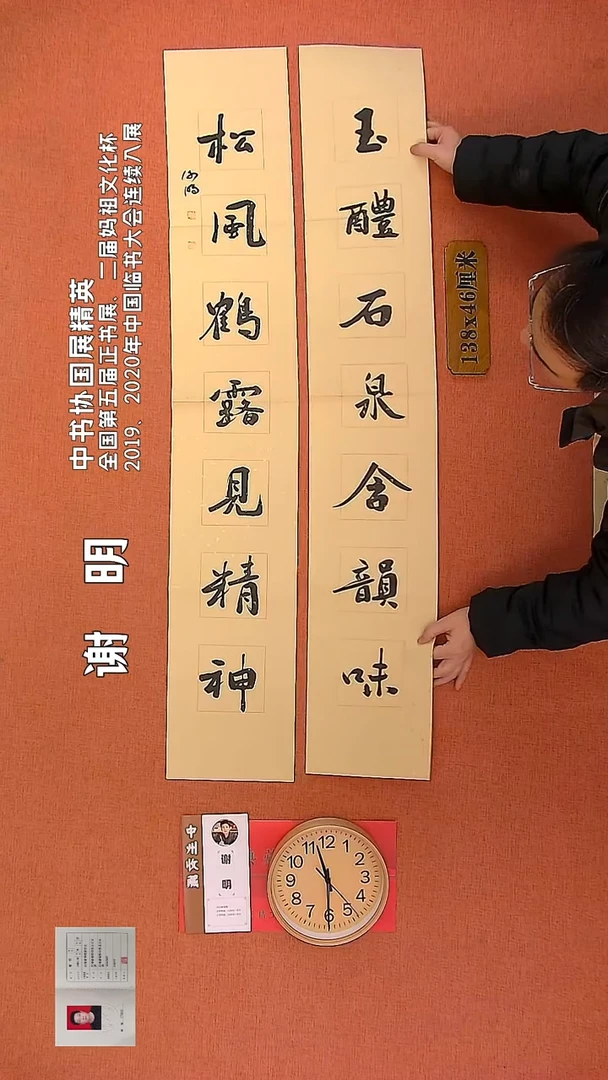 玉醴石泉含韻味
松風鶴露見精神
谢明
138x46厘米
谢明
中书协国展精英
全国第五届正书展、二届妈祖文化杯
2019、2020年中国临书大会连续入展
谢明
12
1
2
3
4
5
6
7
8
9
10
11